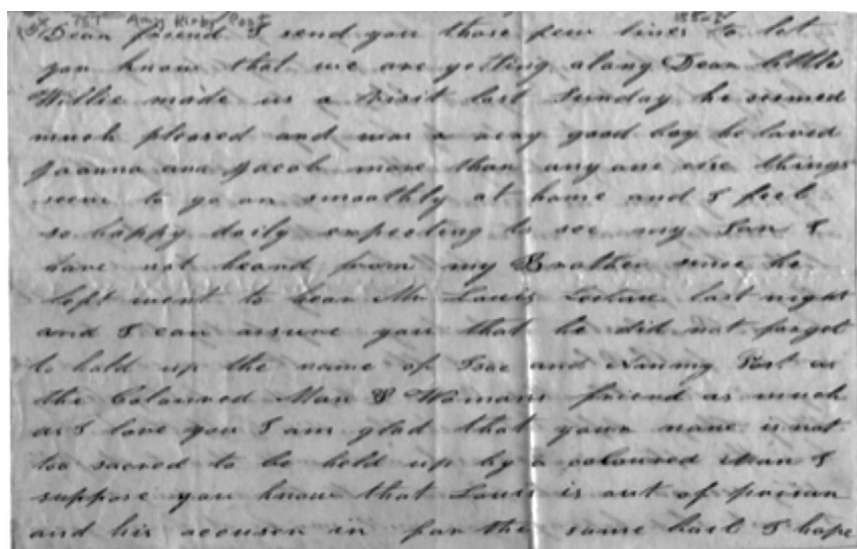 757 Amy Kirby Post 185-?
Dear friend I send you those few lines to let
you know that we are getting along Dear little
Willie made us a visit last Sunday he seemed
much pleased and was a very good boy he loved
Joanna and Jacob more than any one else things
seem to go on smoothly at home and I feel
so happy daily expecting to see my Son I
have not heard from my Brother since he
left went to hear Mr Louis Lecture last night
and I can assure you that he did not forget
to hold up the name of Isac and Post as
the Coloured Man & Womans friend as much
as I love you I am glad that your name is not
too sacred to be held up by a coloured man I
suppose you know that Louis is out of prison
and his accuser in for the same I hope